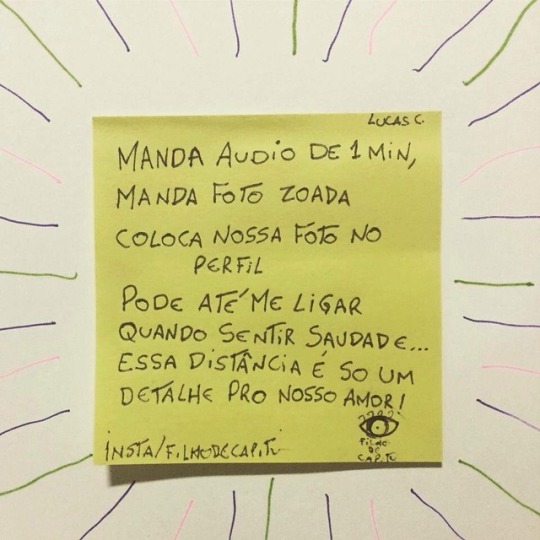 LUCAS C.
MANDA AUDIO DE 1 MIN,
MANDA FOTO ZOADA
COLOCA NOSSA FOTO NO
PERFIL
PODE ATÉ ME LIGAR
QUANDO SENTIR SAUDADE...
ESSA DISTÂNCIA É SO UM
DETALHE PRO NOSSO AMOR!
INSTA/FILHODECAPITU
FILHO
DE
CAPITU